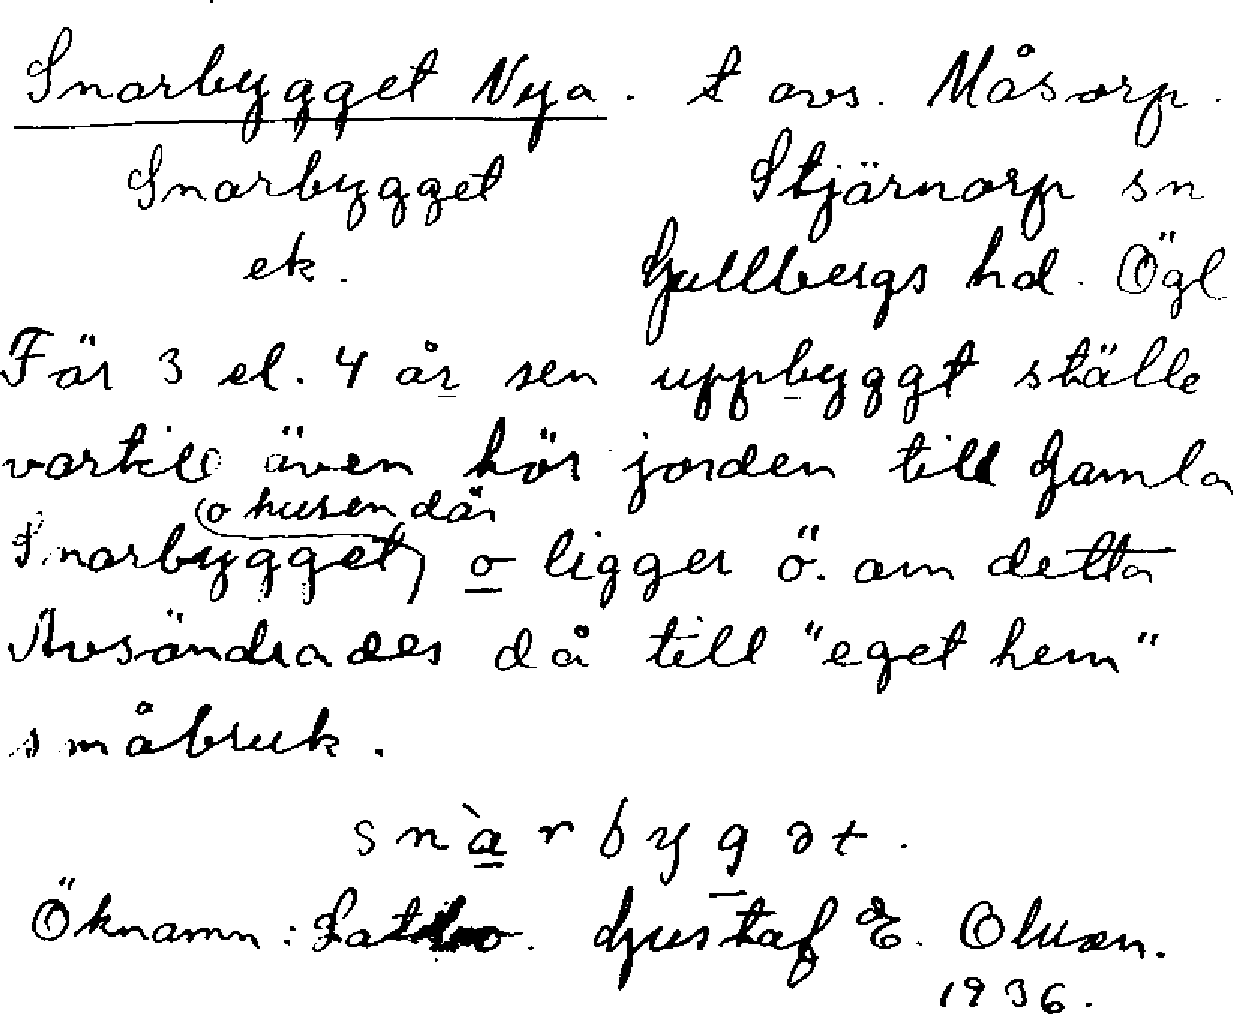 Snarbygget Nya. t avs. Måsorp.
Snarbygget Stjärnorp sn
ek. Gullbergs hd. Ögl
Fär 3 el. 4 år sen uppbyggt ställe
vartill även hör jorden till Gamla
(o husen där
Snarbygget) o ligger ö. om detta
Avsöndrades då till "eget hem"
småbruk.
snàrbygət.
Öknamn: Latbo. Gustaf E. Olson.
1936.